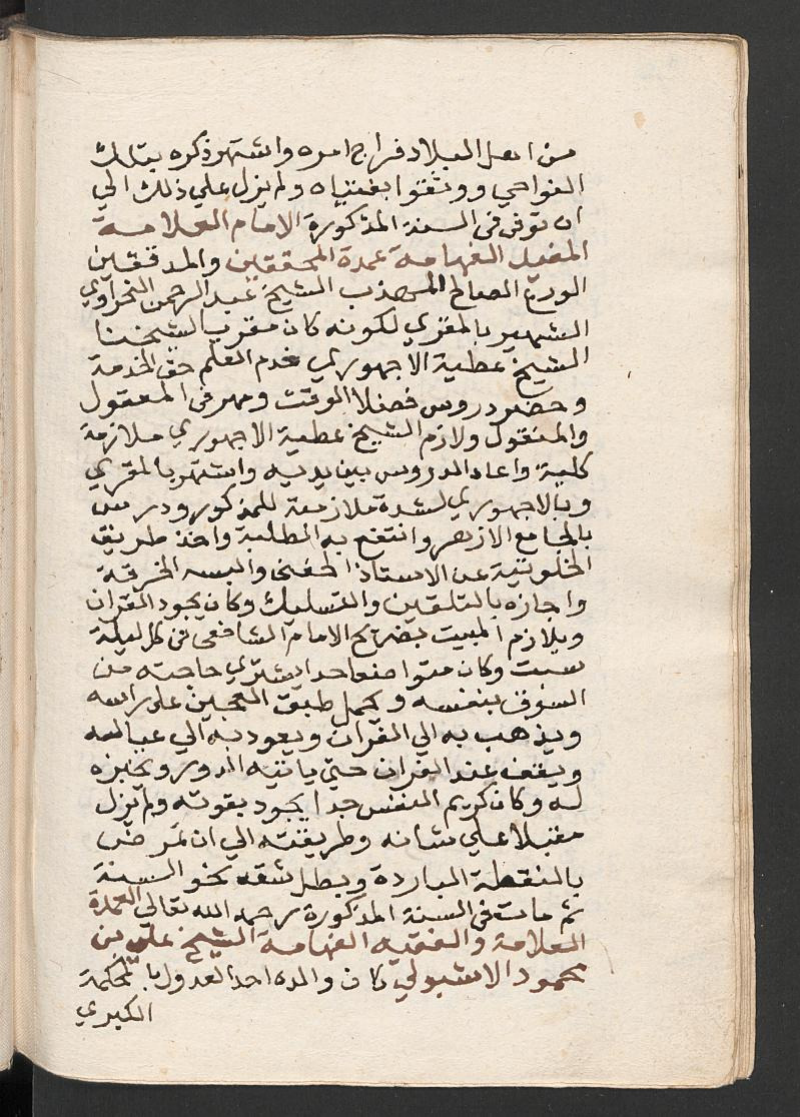 من اهل البلاد فراج امره واشتهر ذكره بتلك
النواحي ووثقوا بفتياه ولم يزل علي ذلك الي
ان توفي في السنة المذكورة الامام العلامة
المفيد الفهامة عمدة المحققين والمدققين
الورع الصالح المهذب الشيخ عبد الرحمن النحراوي
الشهير بالمقري لكونه كان مقرب لشيخنا
الشيخ عطية الاجهوري خدم العلم حق الخدمة
وحضر دروس فضلا الوقت ومهر في المعقول
والمنقول ولازم الشيخ عطية الاجهوري ملازمة
كلية واعاد الدروس بين يديه واشتهر بالمقري
وبالاجهوري لشدة ملازمته للمذكور ودرس
بالجامع الازهر وانتفع به الطلبة واخذ طريق
الخلوتية عن الاستاذ الحفني والبسه الخرقة
واجازه بالتلقين والتسليك وكان يجود القران
ويلازم المبيت بضريح الامام الشافعي في كل ليلة
سبت وكان متواضعا جدا يشتري حاجته من
السوق بنفسه ويحمل طبق العجين علي راسه
ويذهب به الي الفران ويعود به الي عياله
ويقف عند الفران حتي ياتيه الدور ويخبزه
له وكان كريم النفس جدا يجود بقوته ولم يزل
مقبلا علي شانه وطريقته الي ان تمرض
بالنقطة الباردة وبطل شقه نحو السنة
ثم مات في السنة المذكورة رحمه الله تعالي العمدة
العلامة والفقيه الفهامة الشيخ علي بن
محمود الاشبولي كان والده احد العدول بالمحكمة
الكبري